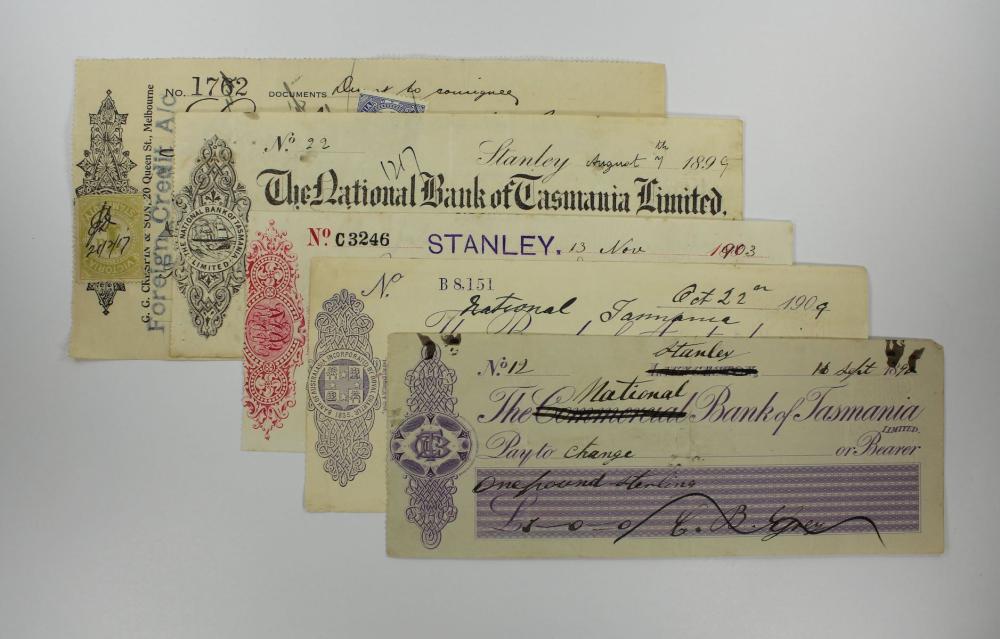 No. 1762 DOCUMENTS
G. G. CRESPIN & SON, 20 Queen St., Melbourne
Foreign Credit A/c
No. 22 Stanley August 7th 1899
1217
The National Bank of Tasmania Limited.
THE NATIONAL BANK OF TASMANIA LIMITED.
No. C 3246 STANLEY. 13 Nov 1903
No. B 8,151 Oct 22 1909
National Tasmania
BANK OF AUSTRALASIA INCORPORATED BY ROYAL CHARTER 1835
Stanley
No. 12 Sept 189
National
The Commercial Bank of Tasmania
LIMITED.
Pay to Change or Bearer
One pound Sterling
£